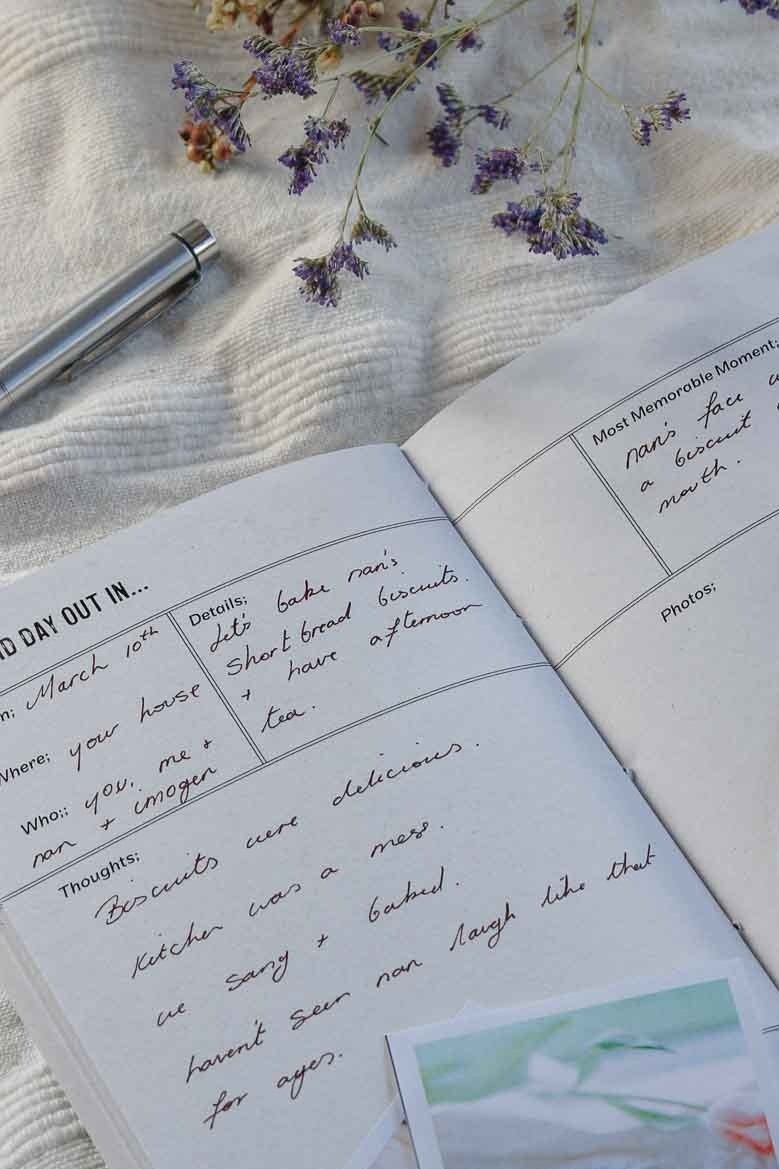 DAY OUT IN...
March 10th
Where; your house
Who;; you, me +
nan + imogen
Details;
Let's bake nan's
Shortbread biscuits.
+ have afternoon
tea.
Thoughts;
Biscuits were delicious.
Kitchen was a mess.
we sang + baked.
haven't seen nan laugh like that
for ages.
Most Memorable Moment;
nan's face
a biscuit
mouth.
Photos;